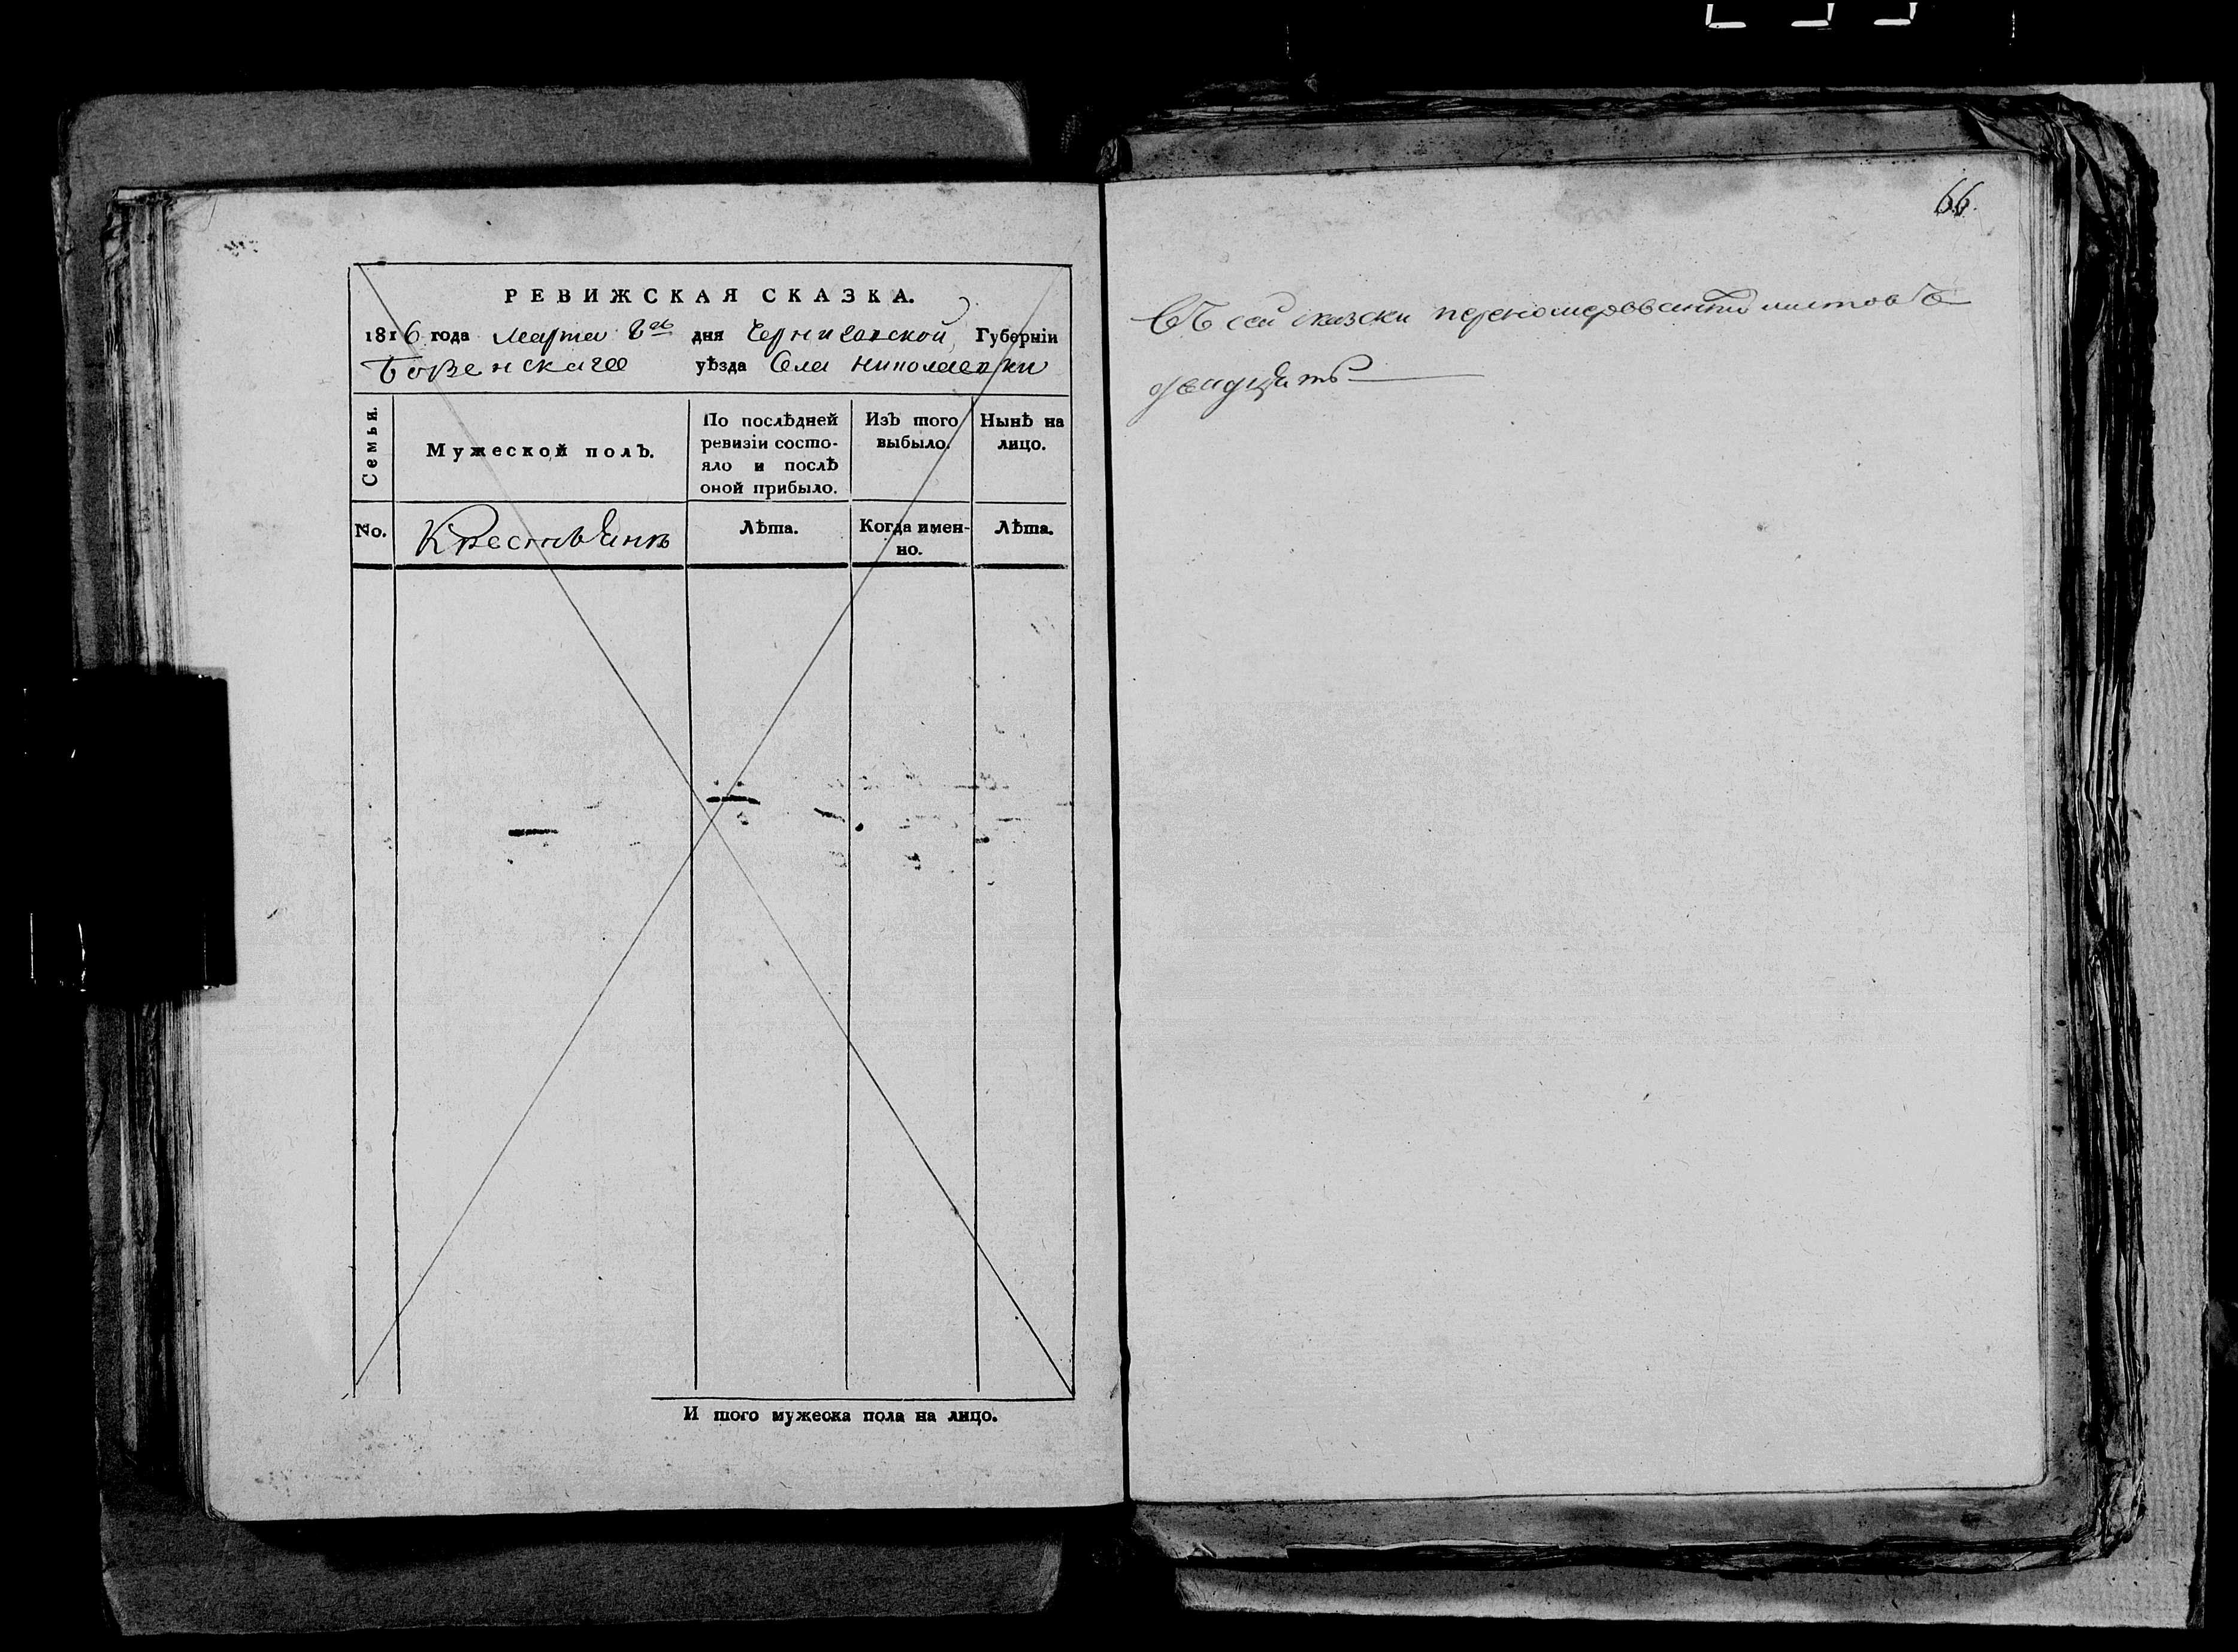 РЕВИЖСКАЯ СКАЗКА.
1816 года Марта дня Черниговской Губерніи
Борзенскаго уѣзда Села Николаевки
Семьи.
Мужеской полъ.
По послѣдней ревизіи состо-
яло и послѣ
оной прибыло.
Изъ того
выбыло.
Нынѣ на
лицо.
No.
Крестьянъ
Лѣта.
Когда имен-
но.
Лѣта.
И того мужеска пола на лицо.
66.
Въ сей сказки перенумерованныхъ листовъ
двадцать